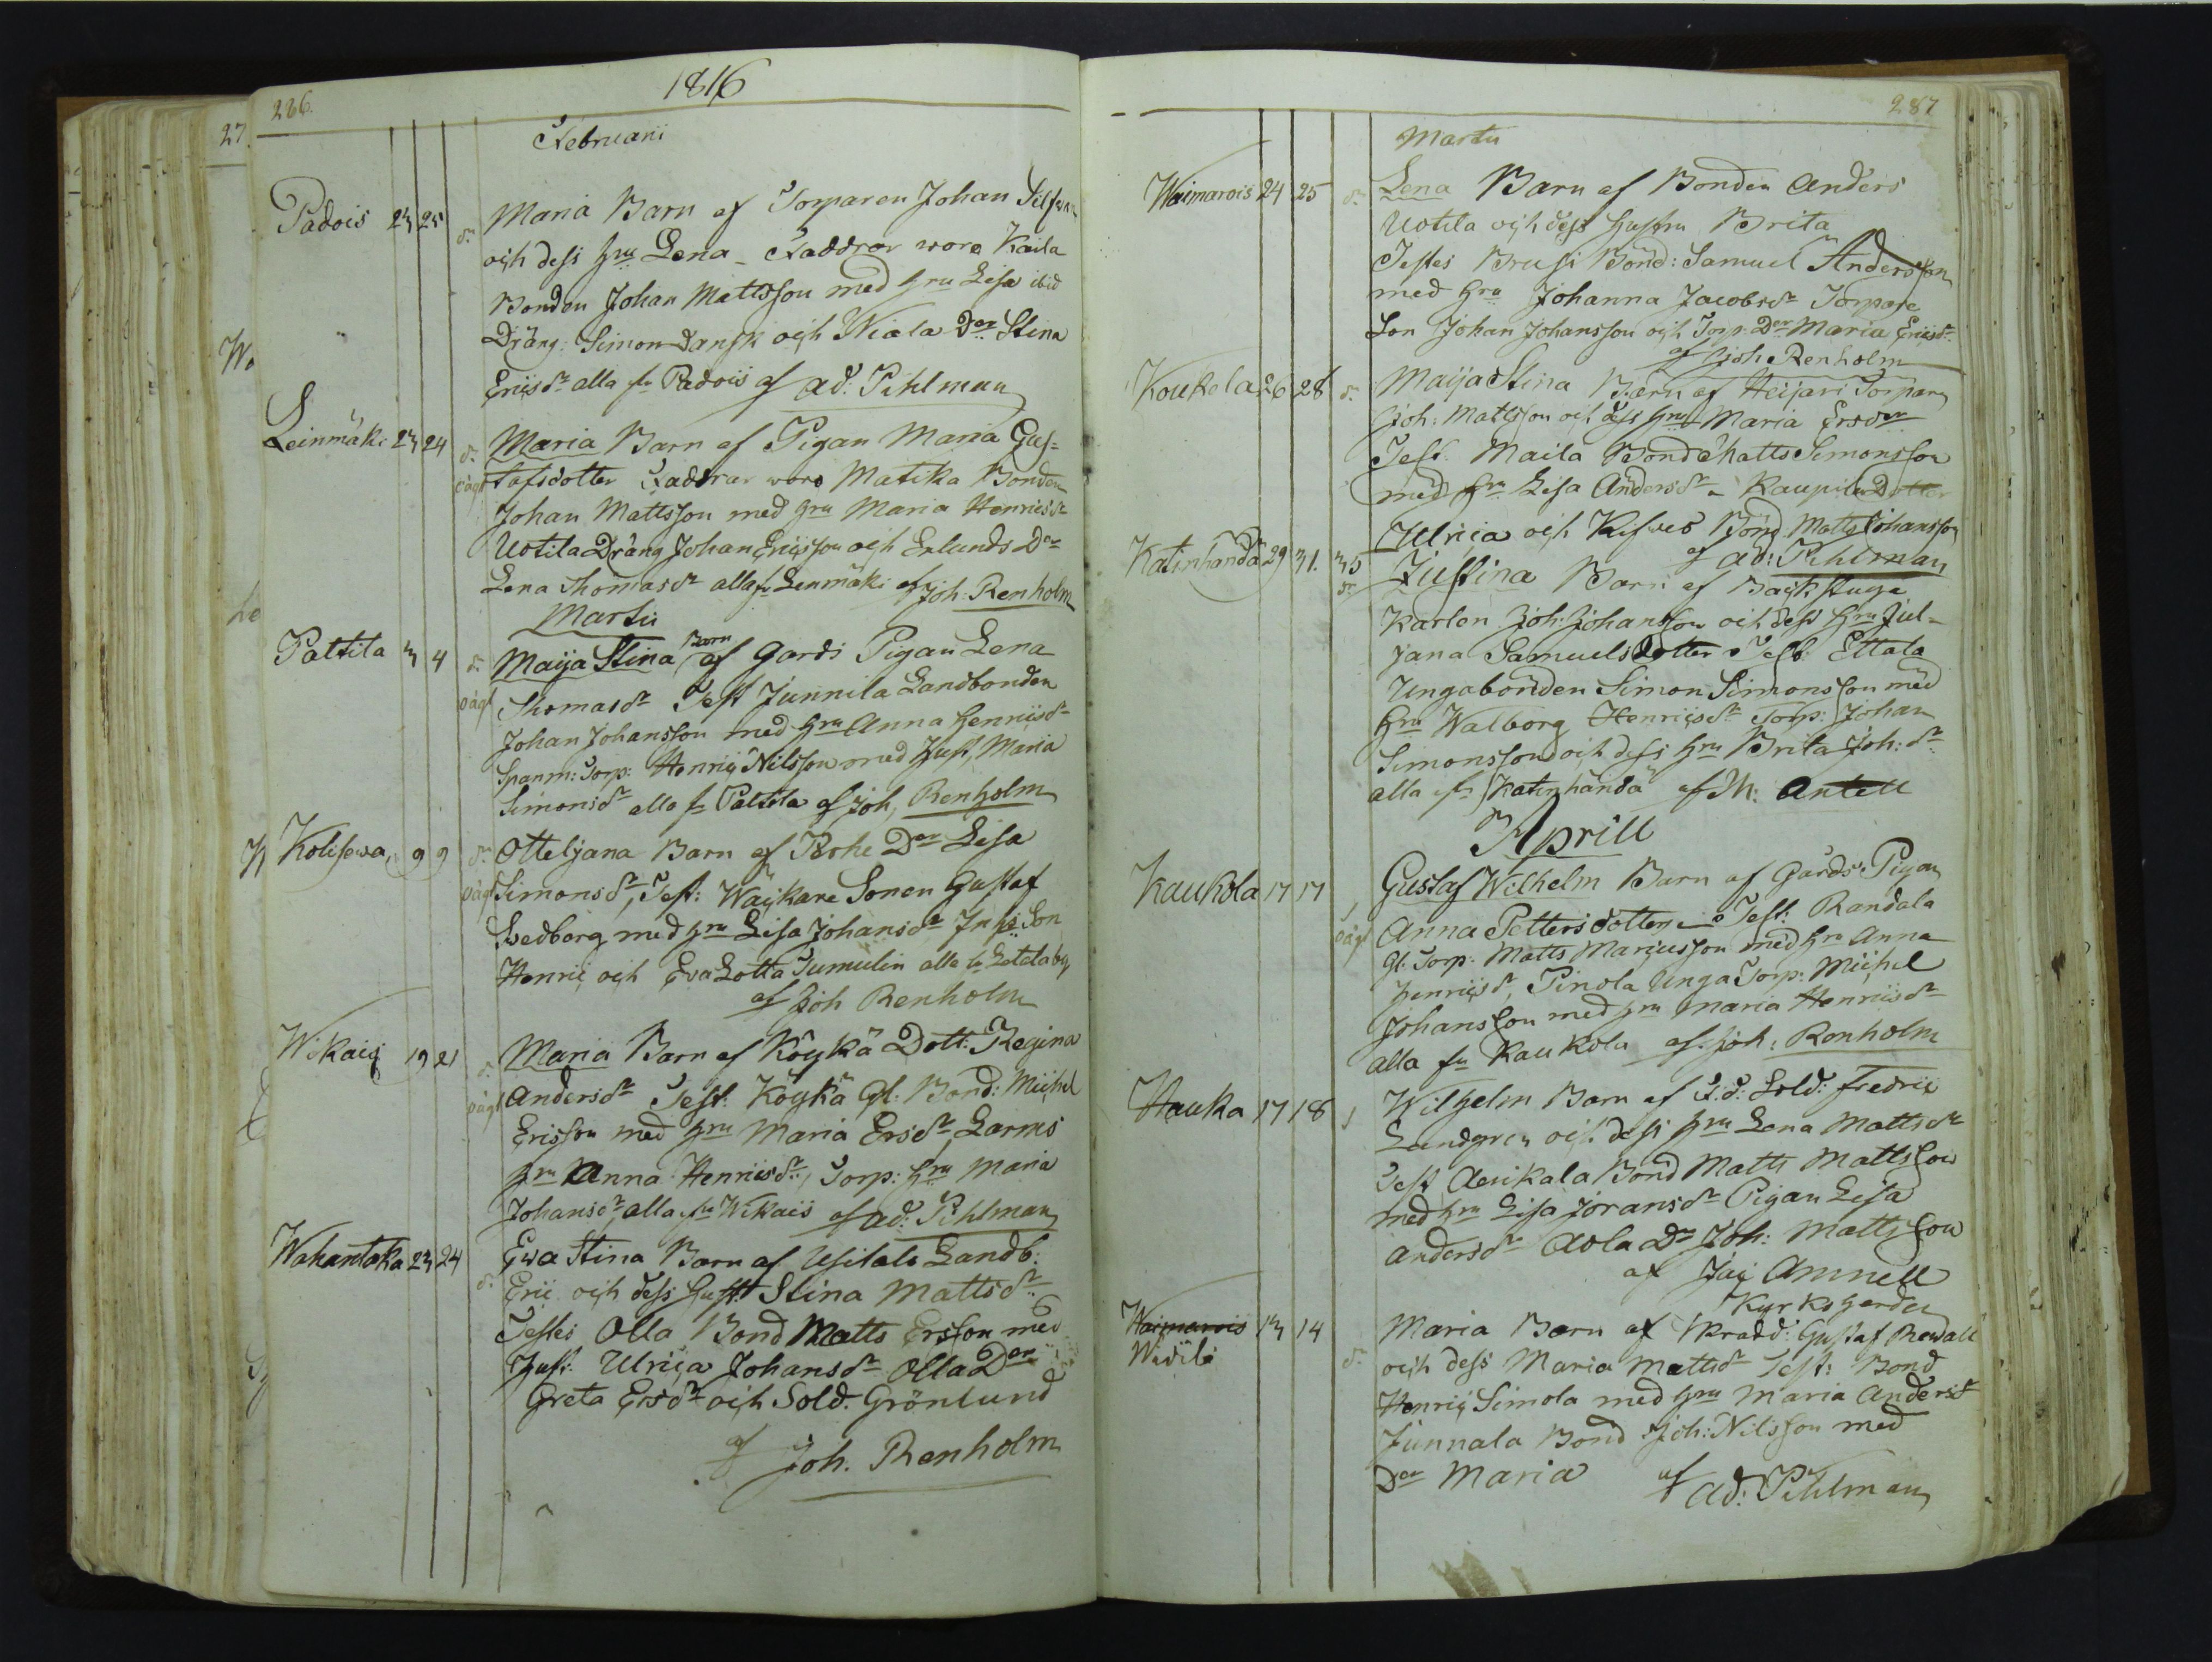 286.
1816
Februarii
Padois 23 25 dr Maria Barn af Torparen Johan
och dess hru Lena - Faddrar woro Kaila
Bonden Johan Mattsson med hru Lisa ibid
Dräng: Simon Dansk och Niala Der Stina
Ericsdr alla fr Padois af Ad: Pihlman
Leinmäki 23 24 dr Maria Barn af Pigan Maria Gus-
oägt tafsdotter Faddrar woro Matika Bonden
Johan Mattsson med hru Maria Henricsdr
Uotila Dräng Johan Ericsson och Erlunds Der
Lena Thomasdr alla fr Lenmäki af Joh: Renholm
Martii
Pattila 3 4 dr Maija Stina Barn af Gards Pigan Lena
oägt Thomasdr Test Junnila Landbonden
Johan Johansson med hru Anna Henricsdr
Spanm: Torp: Henric Nilsson med Hust, Maria
Simonsdr alla fr Pattila af Joh, Renholm
Kolisewa 9 9 dr Otteljana Barn af Der Lisa
oägt Simonsdr, Test: Waykare Sonen Gustaf
Sedborg med hru Lisa Johansdr Son
Henric och Eva Lotta Tumulin alla fr
af Joh Renholm
Wikaig 19 21 dr Maria Barn af Köykä Dott: Regina
oägt Andersdr Test: Köykä Gl: Bond: Michel
Ericsson med hru Maria Ersdr Larms
hru Anna Henricsdr, Torp: hru Maria
Johansdr, alla fr Wikais af Ad: Pihlman
Wahantaka 23 24 Ewa Stina Barn af Landb:
dr Eric och dess hust: Stina Mattsdr
Testes Olla Bond Matts Ersson med
Hust: Ulrica Johansdr Olla Der
Greta Ersdr och Sold. Grönlund
af Joh. Renholm
287
Martii
Waimarois 24 25 dr Lena Barn af Bonden Anders
Uotila och dess hustru Brita
Testes Brusi Bond: Samuel Andersson
med hru Johanna Jacobsdr Torpare
Son Johan Johansson och Torp: Der Maria Ericsdr
af Joh: Renholm
Koukela 26 28 dr Maija Stina Barn af Heijari Torparen
Joh: Mattsson och dess hru Maria Ersder
Test: Maila Bond Matts Simonsson
med hru Lisa Andersdr - Kaupila Dotter
Ulrica och Bond Matts Johansson
af Ad: Pihlman
Katinhändä 29 31. 35 dr Justina Barn af Backstuge
Karlen Joh: Johansson och dess hru Jul-
jana Samuelsdotter Test: Ettala
Ungabonden Simon Simonsson med
hru Walborg Henricsdr Torp: Johan
Simonsson och dess hru Brita Joh: dr
alla fr Katinhändä af M: Antell
Aprill
Kaukola 17 17 Gustaf Wilhelm Barn af Gårds Pigan
oägt Anna Pettersdotter Test: Randala
Gl: Torp: Matts Mariusson med hru Anna
Henricsdr, Pinola Unga Torp: Michel
Johansson med hru Maria Henricsdr
alla fr Kaukola af Joh: Renholm
Hauka 17 18 Wilhelm Barn af Sold: Fredric
Lundgren och dess hru Lena Mattsdr
Test Aeikala Bond Matts Mattsson
med hru Lisa Joransdr Pigan Lisa
Andersdr Aola Dr Joh: Mattsson
af Jac Amnell
Kyrkoherden
Waimarois 13 14 Maria Barn af Skradd: Gustaf Rewall
Widilä dr och dess Maria Mattsdr Test: Bond
Henric Simola med hru Maria Andersdr
Junnala Bond Joh: Nilsson med
Der Maria af Ad: Pihlman